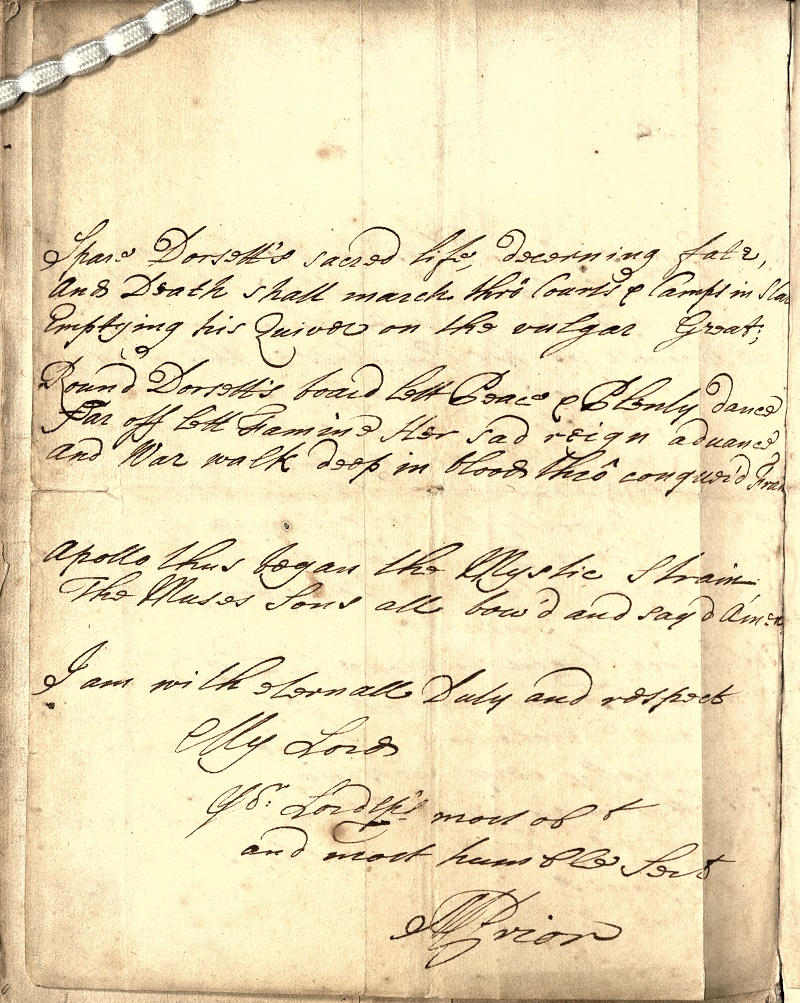 Spare Dorsett's sacred life, decerning fate,
And Death shall march thrô Courts & Camps in
Emptying his Quiver on the vulgar Great;
Round Dorsett's board lett Peace & Plenty dance
Far off lett Famine Her sad reign advance
and War walk deep in blood thrô conquer'd
Apollo thus began the Mystic Strain
The Muses Sons all bow'd and say'd Amen
I am with eternall Duty and respect
My Lord
Yor. Lordsp's most obt
and most humble Sert
MPrior